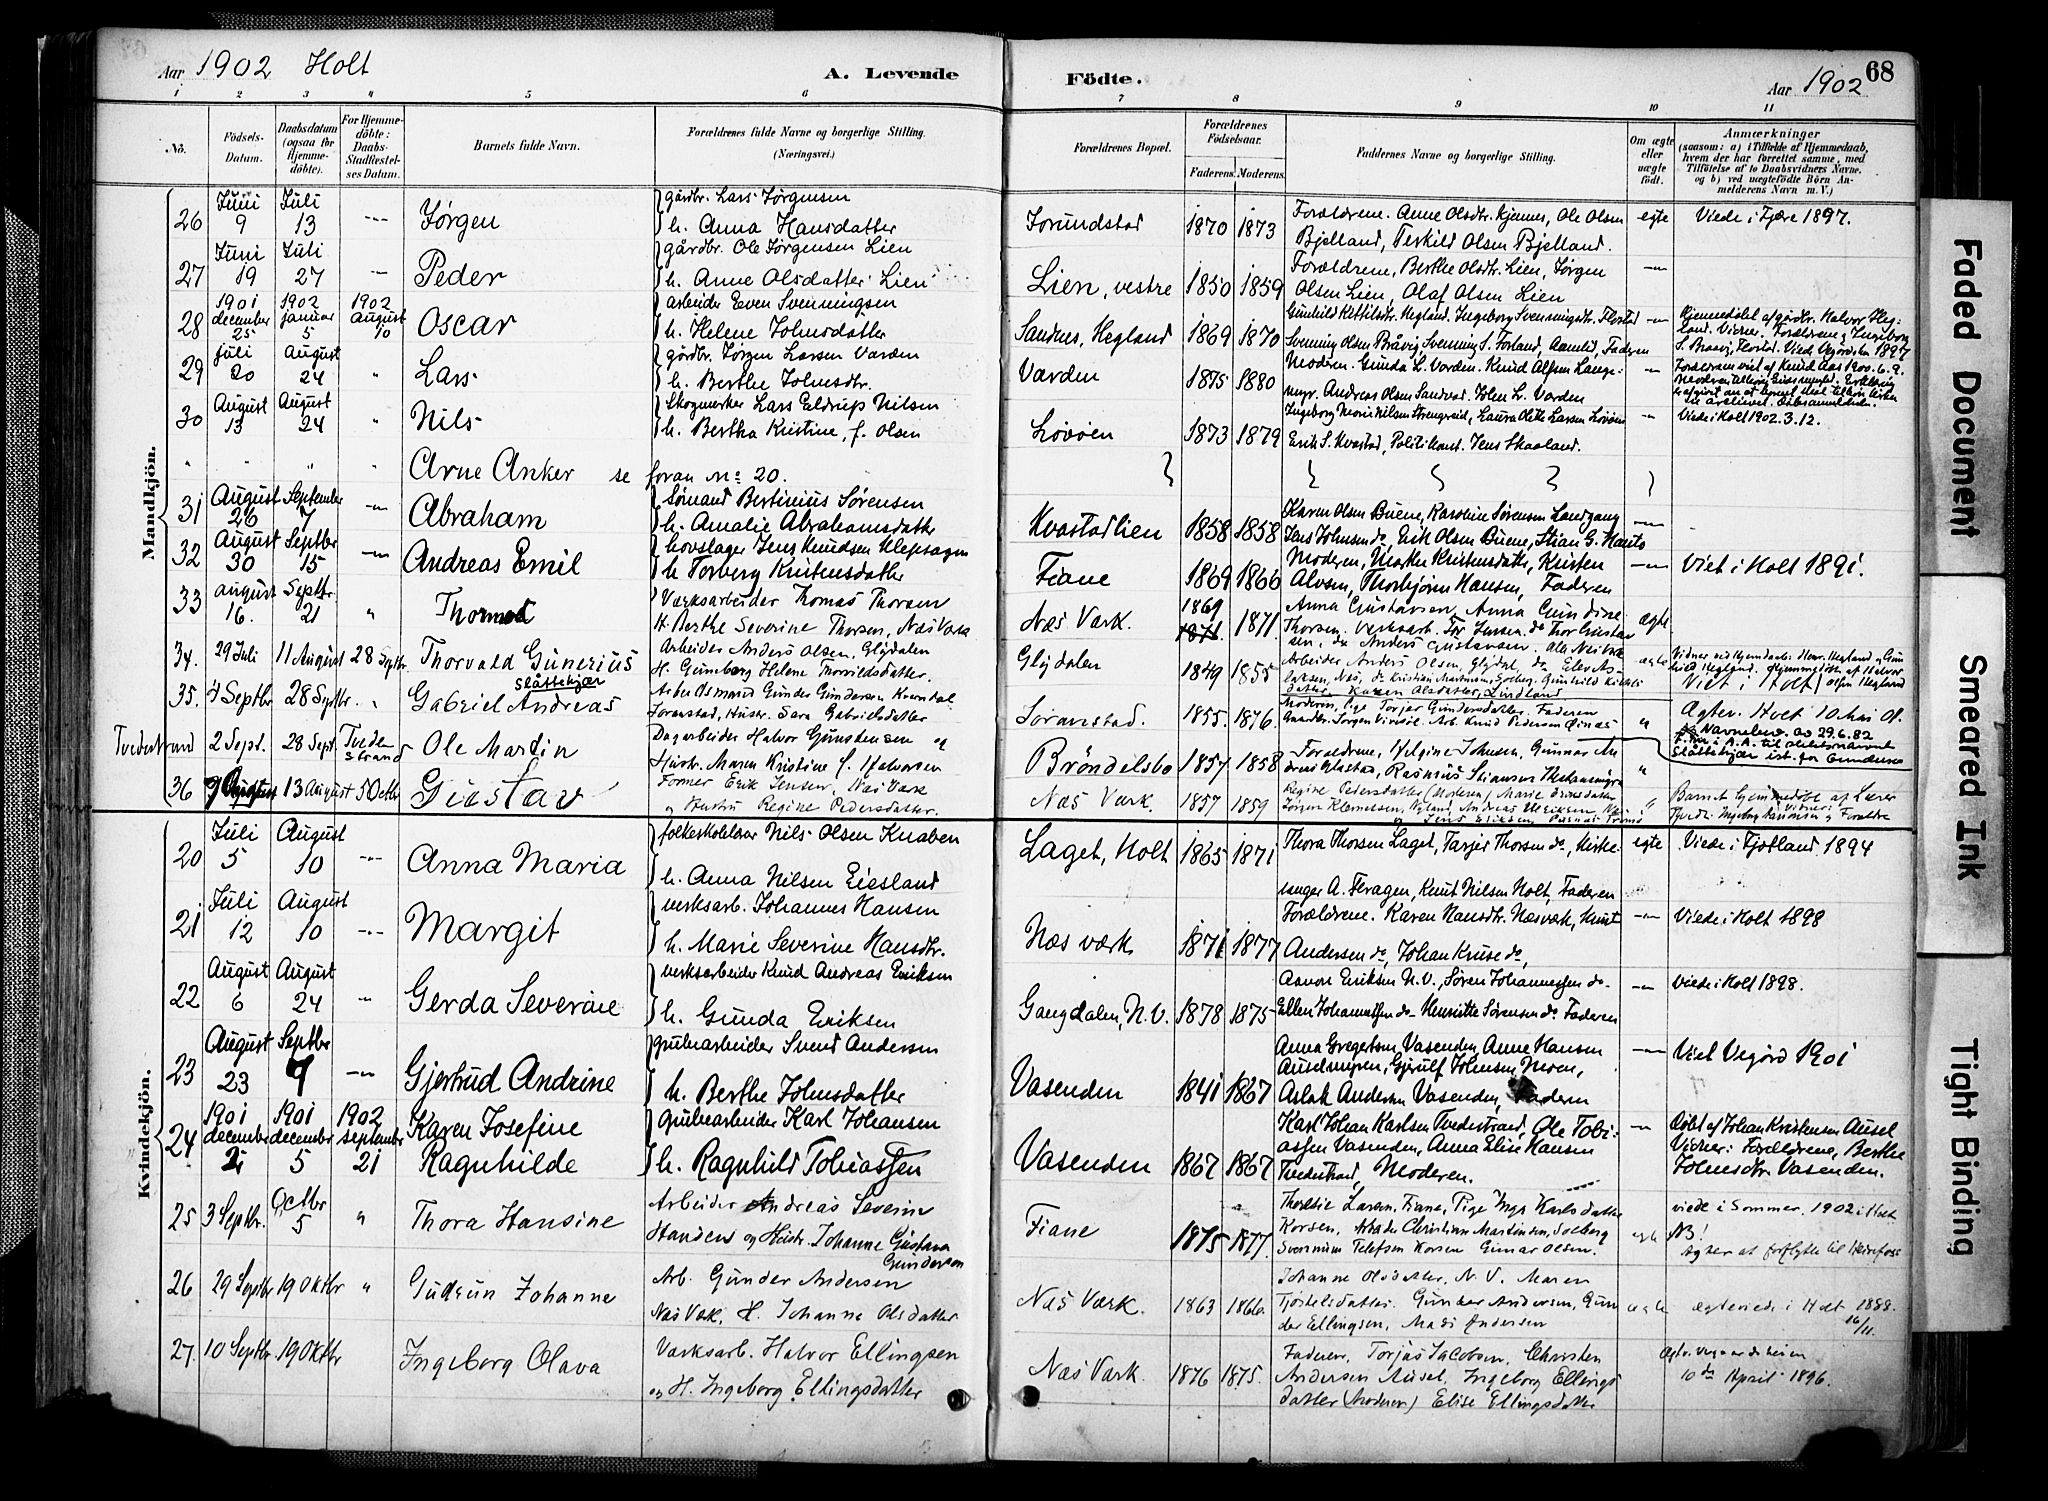 Aar 1902 Holt A. Levende Födte. Aar 1902 68
1 2 3 4 5 6 7 8 9 10 11
Nö.
Födsels-Datum.
Daabsdatum (ogsaa for Hjemme-döbte).
For Hjemme-döbte: Daabs-Stadfæstel-ses Datum.
Barnets fulde Navn.
Forældrenes fulde Navne og borgerlige Stilling. (Næringsvei.)
Forældrenes Bopæl.
Forældrenes Födselsaar.
Faderens. Moderens.
Faddernes Navne og borgerlige Stilling.
Om ægte eller uægte födt.
Anmærkninger
(saasom: a) i Tilfælde af Hjemmedaab,
hvem der har forrettet samme, med
Tilföielse af to Daabsvidners Navne.
og b) ved uægtefödte Börn An-
melderens Navn m. V.)
Mandkjön.
26 Juni 9 Juli 13 Jørgen
gårdbr. Lars Jørgensen
h. Anna Hansdatter
Jorundstad 1870 1873
Forældrene. Anne Olsdtr. Kjennes, Ole Olsen
Bjelland, Terkild Olsen Bjelland.
egte Viede i Fjære 1897.
27 Juni 19 Juli 27 Peder
gårdbr. Ole Jørgensen Lien
h. Anne Olsdatter Lien
Lien, vestre 1850 1859
Forældrene, Berthe Olsdtr. Lien, Jørgen
Olsen Lien, Olaf Olsen Lien
28 1901 december 25 1902 januar 5 1902 August 10 Oscar
arbeider Even Svenningsen
h. Helene Johnsdatter
Sandnes, Hegland 1869 1870
Gunhild Kittilsdtr. Hegland. Ingeborg Svenningsdtr. Flostad
Svenning Olsen Bråvig, Svenning S. Forland, Aamlid, Faderen
Hjemmedøbt af gårdbr. Halvor Heg-
land. Vidner: Forældrene, Ingeborg
S. Braavig, Flostad. Viede Vegårdsh. 1897
29 juli 20 August 24 Lars
gårdbr. Jørgen Larsen Varden
h. Berthe Johnsdtr.
Varden 1875 1880
Moderen. Gunda L. Varden. Knud Alfsen Lange-
myr. Andreas Olsen Sandnes. John L. Varden
30 August 13 August 24 Nils
Skogmerker Lars Eldrup Nilsen
h. Bertha Kristine f. Olsen
Løvøen 1873 1879
Ingeborg Marie Nilsen Strengereid, Laura Olette Larsen Løvøen
Erik S. Kvastad, Politikonst. Jens Skaaland.
Viede i Holt 1902.3.12.
Arne Anker se foran No: 20.
31 August 26 September 7 Abraham
Sømand Bertinius Sørensen
h. Amalie Abrahamsdatter
Kvastadlien 1858 1858
Karen Olsen Buene, Karoline Sørensen Landgang
Jens Johnsen do, Erik Olsen Buene, Stian G.
32 August 30 Septbr 15 Andreas Emil
hovslager Jens Knudsen Klepsagen
h. Torberg Kristensdatter
Fiane 1869 1866
Moderen, Marthe Kristensdatter, Kristen
Alvsen, Thorbjørn Hansen, Faderen
Viet i Holt 1891.
33 august 16. Septbr. 21 Thormod
Værksarbeider Thomas Thorsen
H. Berthe Severine Thorsen, Næs Værk
Næs Værk. 1869 1871 1871
Anna Gustavsen, Anna Gundine
Thorsen. Værksarb. Tor Jensen, do Thor Gustav
sen, do Anders Gustavsen. alle Næs Værk
ægte
34. 29 Juli 11 August 28 Septbr. Thorvald Gunerius
Arbeider Anders Olsen, Glijdalen
H. Gunborg Helene Thorvildsdatter.
Glijdalen 1849 1855
Arbeider Anders Olsen, Glijdal, do Elev
ægte
Viet i Holt
35. 4 Septbr 28 Septbr. Slåttekjær Gabriel Andreas
Gunder Gundersen
Jorunstad, Hustr. Sara Gabrielsdatter
Jorunstad. 1855. 1876.
Ægtev. Holt 10 Mai 01.
Navnebev. av 29.6.82
Tvedestrand 2 Sept. 28 Sept. Tvedestrand Ole Martin
Dagarbeider Halvor Gunstensen og
Hustr. Maren Kristine f. Halvorsen
Bröndelsbo 1857 1858
Forældrene, Helgine Johnsen, Gunnar
36 9 August 13 August 5 Octbr Gustav
Former Erik Jensen, Næs Værk
og Hustru Regine Pedersdatter.
Næs Værk. 1857 1859
Regine Pedersdatter (Moderen) Marie Eriksdatter
Barnet hjemmedöbt af Lærer
Kvindekjön.
20 Juli 5 August 10 Anna Maria
folkeskolelærer Nils Olsen Knaben
h. Anna Nilsen Eiesland
Laget, Holt 1865 1871
Thora Thorsen Laget, Tarjer Thorsen do, Kirke-
sanger A. Feragen, Knut Nilsen Holt, Faderen
egte Viede i Fjotland 1894
21 Juli 12 August 10 Margit
værksarb. Johannes Hansen
h. Marie Severine Hansdtr.
Næs værk 1871 1877
Forældrene. Karen Hansdtr. Næsværk, Knut
Andersen do, Johan Kruse do,
Viede i Holt 1898
22 August 6 August 24 Gerda Severine
værksarbeider Knud Andreas Eriksen
h. Gunda Eriksen
Gangdalen, N.V. 1878 1875
Aanon Eriksen N.V., Søren Johannessen do
Ellen Johannessen do Henriette Sørensen do Faderen
Viede i Holt 1898.
23 August 23 Septbr 7 Gjertrud Andrine
grubearbeider Svend Andersen
h. Berthe Johnsdatter
Vasenden 1841 1867
Anna Gregertsen Vasenden, Anne Hansen
Auselmyren, Gjerulf Johnsen Moen,
Aslak Andersen Vasenden, Faderen
Viet Vegård 1901
24 1901 december 2 1901 december 5 1902 september 21 Karen Josefine
Ragnhilde
grubearbeider Karl Johansen
h. Ragnhild Tobiassen
Vasenden 1867 1867
Karl Johan Karlsen Tvedestrand, Ole Tobi-
assen Vasenden, Anna Elise Hansen
Tvedestrand, Moderen.
Døbt af Johan Kristensen Ausel
Vidner: Forældrene, Berthe
Johnsdtr. Vasenden.
25 3 Septbr. Octbr 5 Thora Hansine
Arbeider Andreas Severin
Hansen og Hustr. Johanne Gustava
Gundersen
Fiane 1875 1877
Thoralie Larsen, Fiane, Pige Inga Karlsdatter
Korsen, Arbeider Christian Martinsen, Solberg
Svennum Tellefsen Korsen Gunar Olsen.
ægte
viede i Sommer, 1902 i Holt
NB!
Agter at forflytte til Heirefoss
26 29 Septbr 19 Oktbr Gudrun Johanne
Arb. Gunder Andersen
Næs Værk, H. Johanne Olsdatter
Næs Værk. 1863 1866.
Johanne Olsdatter, N. V. Maren
Tjöstelsdatter. Gunnar Andersen, Gun
der Ellingsen, Mads Andersen
ægte Ægteviede i Holt 1888.
16/11.
27. 10 Septbr. 19 Oktbr Ingeborg Olava
Værksarb. Halvor Ellingsen
og H. Ingeborg Ellingsdatter
Næs Værk. 1876 1875.
Faderen, Torjus Jacobsen, Christen
Andersen Ausel, Ingeborg Ellings
datter (Moderen) Elise Ellingsdatter
Ægtv. Vegaardsheien
10de April 1896.
Faded Document
Smeared Ink
Tight Binding